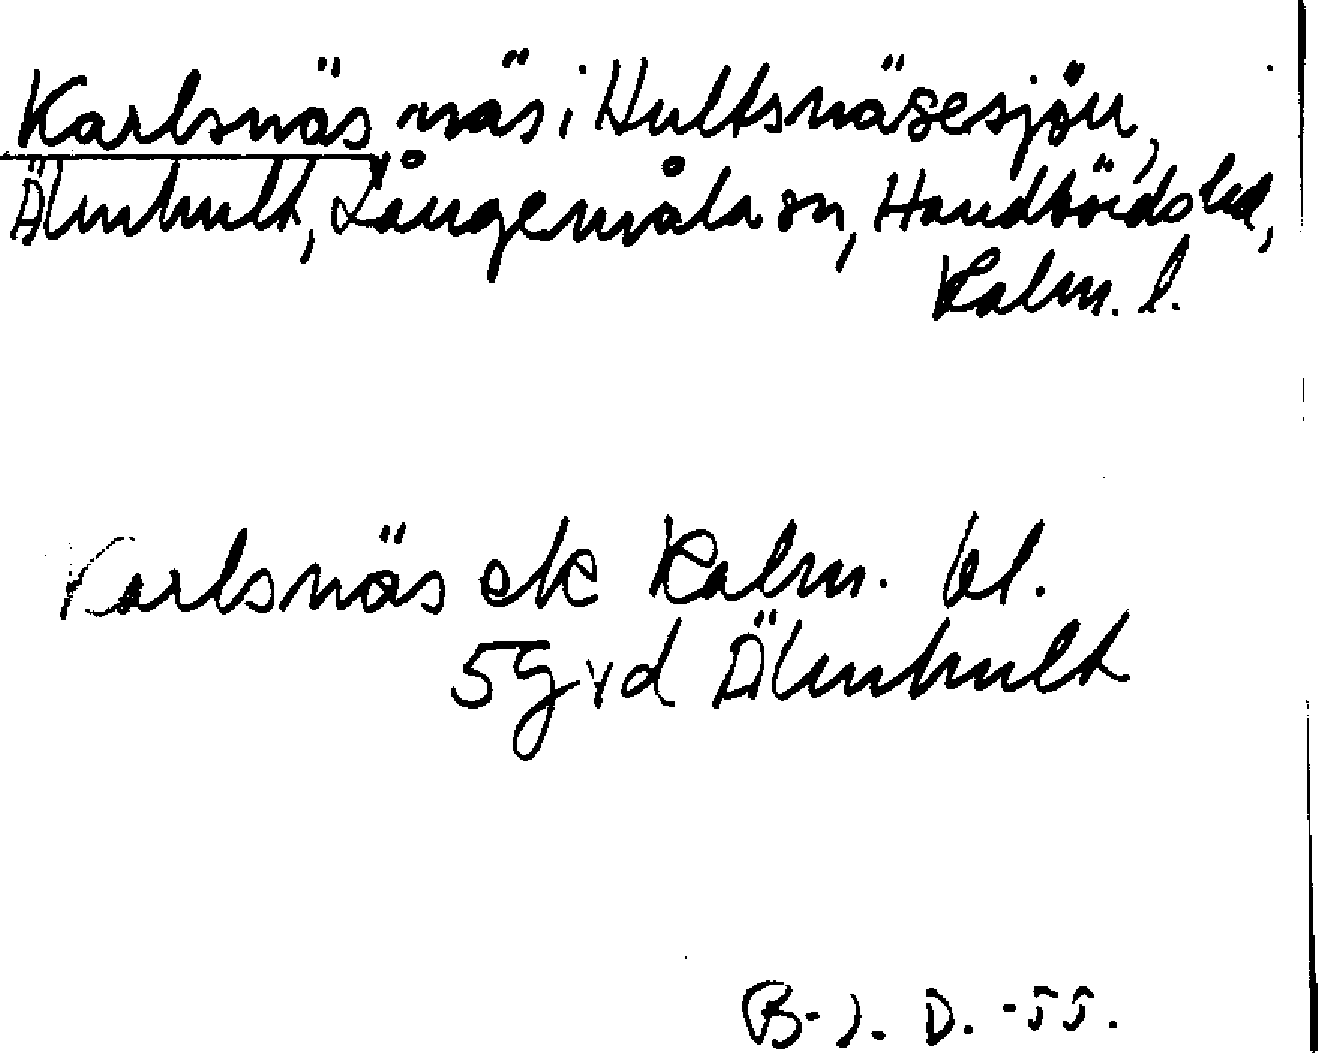 Karlsnäs, näs i Hultsnäsesjön,
Älmhult, Långemåla sn, Handbörds hd,
Kalm. l.
Karlsnäs ek Kalm. bl.
5 G vd Älmhult
B-J. D. -55.